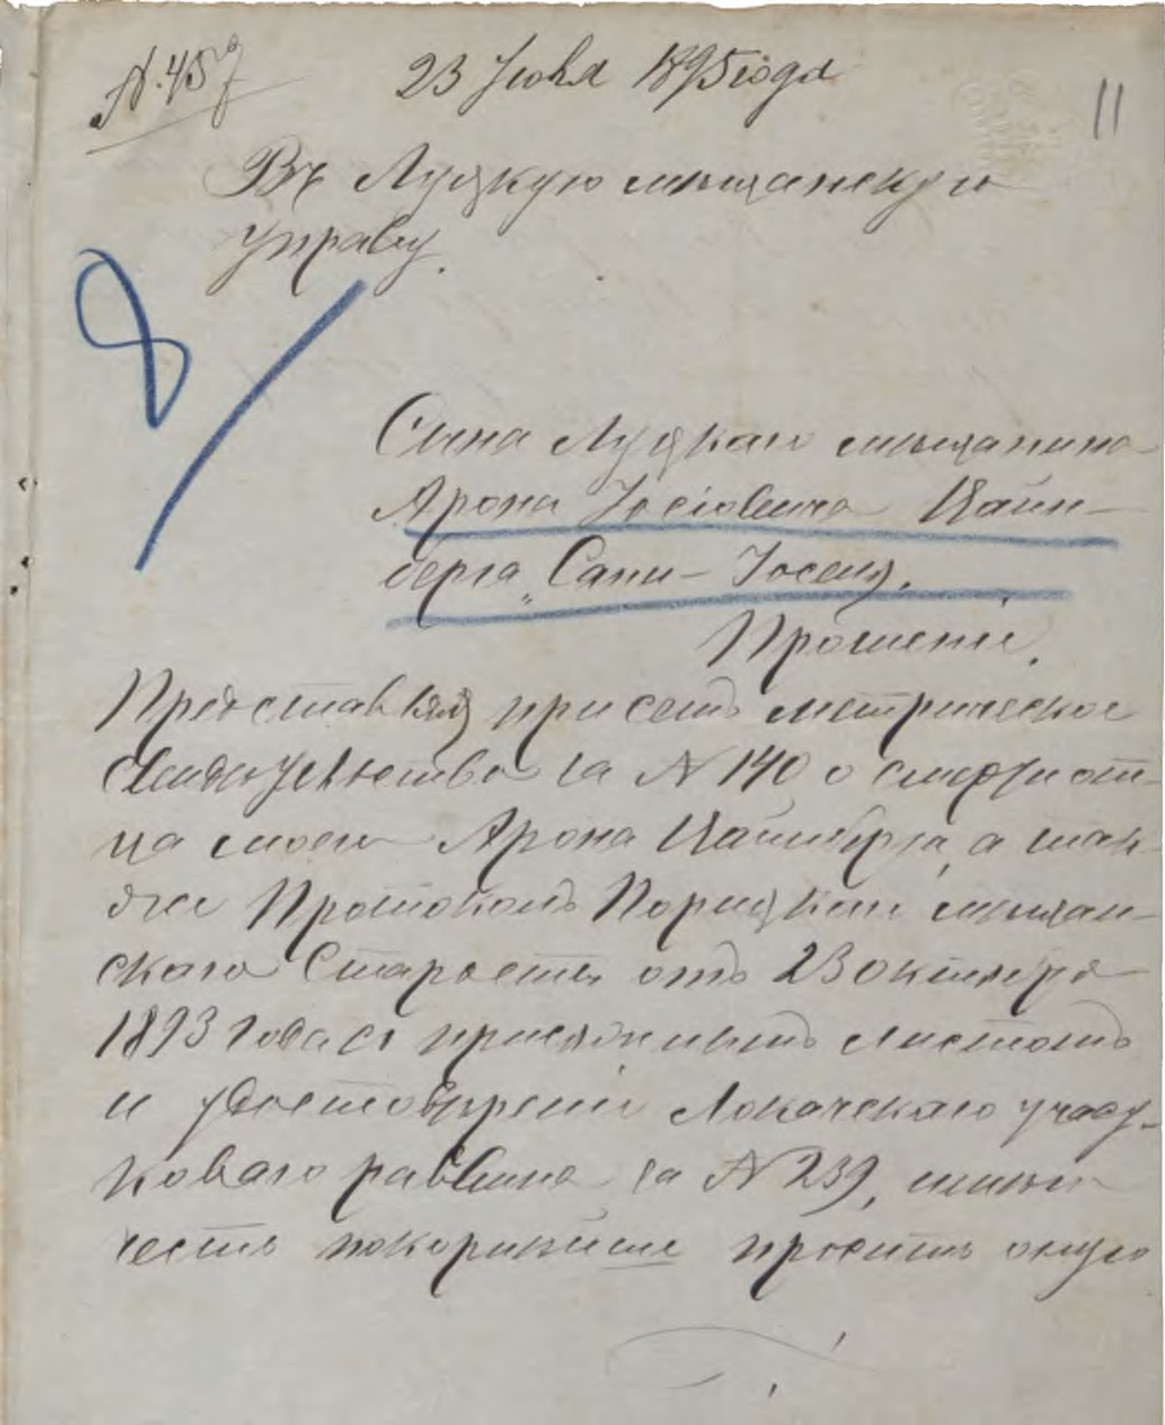 № 457
23 Іюля 1895 года
11
Въ Луцкую мѣщанскую
управу.
Сына Луцкаго мѣщанина
Арона Іосіовича Цайн-
берга „Сани-Іосель.
Прошеніе.
Представляя при семъ метрическое
свидѣтельство за № 140 о смерти от-
ца моего Арона Цайнберга, а так-
же Протоколъ Порицкаго мѣщан-
скаго Старосты отъ 23 октября
1893 года съ присяжнымъ листомъ
и удостовѣреніе Локачскаго участ-
коваго раввина за № 239, имѣю
честь покорнѣйше просить оную